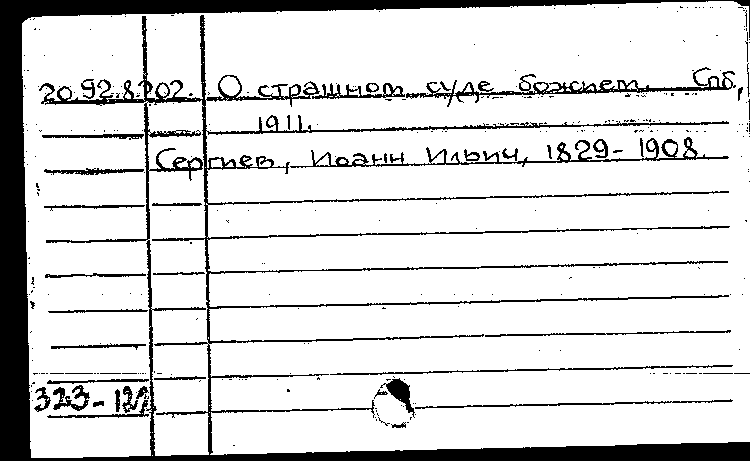 20.92.8202. О страшном суде божием. Спб,
1911.
Сергиев, Иоанн Ильич, 1829-1908.
323-122